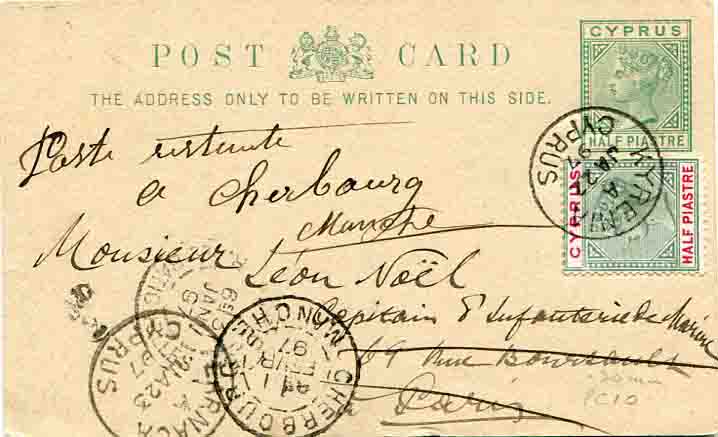 CYPRUS
POST CARD
THE ADDRESS ONLY TO BE WRITTEN ON THIS SIDE.
HALF PIASTRE
CYPRUS
HALF PIASTRE
KYRENIA
A
JA 27
97
CYPRUS
Poste restante
a Cherbourg
Manche
Monsieur
Léon Noël
Capitain d'Infanterie de Marine
69 Rue
Paris
PC10
LARNACA
JA 23
97
CYPRUS
CHERBOURG
97
MANCHE
JAN